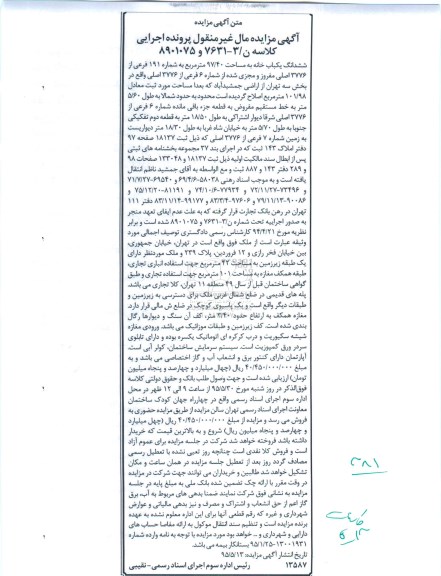 متن آگهی مزایده
آگهی مزایده مال غیرمنقول پرونده اجرایی
کلاسه ن/۳-۷۶۳۱ و ۸۹۰۱۰۷۵
ششدانگ یکباب خانه به مساحت ۹۷/۴۰ مترمربع به شماره ۱۹۱ فرعی از
۳۷۷۶ اصلی مفروز و مجزی شده از شماره ۶ فرعی از ۳۷۷۶ اصلی واقع در
بخش سه تهران از اراضی جمشیدآباد که بعدا مساحت مورد ثبت معادل
۱۰۱/۹۸ مترمربع اصلاح گردیده است محدود به حدود: شمالا به طول ۵/۶۰
متر به خط مستقیم مفروض به قطعه جزء باقی مانده شماره ۶ فرعی از
۳۷۷۶ اصلی شرقا دیوار اشتراکی به طول ۱۸/۵۰ متر به قطعه دوم تفکیکی
جنوبا به طول ۵/۷۰ متر به خیابان شاه غربا به طول ۱۸/۳۰ متر دیواریست
به زمین شماره ۷ فرعی از ۳۷۷۶ اصلی که ذیل ثبت ۱۸۱۳۷ صفحه ۹۷
دفتر املاک ۱۴۳ ثبت که در اجرای بند ۲۷ مجموعه بخشنامه های ثبتی
پس از ابطال سند مالکیت اولیه ذیل ثبت ۱۸۱۳۷ و ۱۳۳۰۴۸ صفحات ۹۸
و ۲۸۹ دفتر ۱۴۳ و ۸۸۷ ثبت و مع الواسطه به آقای جمشید ناظم انتقال
یافته است و به موجب اسناد رهنی ۵۸۰۳۸-۶۹/۴/۶ و ۶۹۵۴۰-۷۱/۷/۲۷
و ۷۳۴۹۶-۷۲/۱۱/۲۷ و ۷۷۹۳۴-۷۴/۱۰/۶ و ۸۱۱۹۱-۷۵/۱۲/۲۰ و
۹۰۰۸۶-۷۹/۱۱/۱۳ و ۹۷۶۰۶-۸۳/۳/۴ و ۹۹۱۷۷-۸۳/۱۱/۱۴ دفتر ۱۱۱
تهران در رهن بانک تجارت قرار گرفته که به علت عدم ایفای تعهد منجر
به صدور اجراییه تحت شماره ن/۳-۷۶۳۱ و ۸۹۰۱۰۷۵ شده است و برابر
نظریه مورخ ۹۴/۴/۲۱ کارشناس رسمی دادگستری توصیف اجمالی مورد
وثیقه عبارت است از ملک فوق واقع است در تهران، خیابان جمهوری،
بین خیابان فخر رازی و ۱۲ فروردین، پلاک ۲۳۹ و ملک موردنظر دارای
یک طبقه زیرزمین به مساحت ۴۲ مترمربع جهت استفاده انباری تجاری،
طبقه همکف مغازه به مساحت ۱۰۱ مترمربع جهت استفاده تجاری و طبق
گواهی ساختمان قبل از سال ۴۹ منطقه ۱۱ تهران، کلا تجاری می باشد.
پله های قدیمی در ضلع شمال غربی ملک برای دسترسی به زیرزمین و
طبقات دیگر واقع است و یک پاسیوی کوچک در ضلع ش مالی قرار دارد.
مغازه همکف به ارتفاع حدود ۳/۴۰ متر، کف آن سنگ و دیوارها رگال
بندی شده است. کف زیرزمین و طبقات موزائیک می باشد. ورودی مغازه
شیشه سکوریت و درب کرکره ای اتوماتیک یکسره بوده و دارای تابلوی
سردر ورق کمپوزیت است. سیستم سرمایش ساختمان، کولر آبی است.
آپارتمان دارای کنتور برق و انشعاب آب و گاز اختصاصی می باشد و به
مبلغ ۴۰/۴۵۰/۰۰۰/۰۰۰ ریال (چهل میلیارد و چهارصد و پنجاه میلیون
تومان) ارزیابی شده است و جهت وصول طلب بانک و حقوق دولتی کلاسه
فوق‌الذکر در روز شنبه مورخ ۹۵/۵/۳۰ از ساعت ۹ الی ۱۲ ظهر در محل
اداره سوم اجرای اسناد رسمی واقع در چهارراه جهان کودک ساختمان
معاونت اجرای اسناد رسمی تهران سالن مزایده از طریق مزایده حضوری به
فروش می رسد و مزایده از مبلغ ۴۰/۴۵۰/۰۰۰/۰۰۰ ریال (چهل میلیارد
و چهارصد و پنجاه میلیون ریال) شروع و به بالاترین قیمت که خریدار
داشته باشد فروخته خواهد شد شرکت در جلسه مزایده برای عموم آزاد
است و فروش کلا نقدی است چنانچه روز تعیی نشده با تعطیل رسمی
مصادف گردد روز بعد از تعطیل جلسه مزایده در همان ساعت و مکان
تشکیل خواهد شد طالبین و خریداران می توانند جهت شرکت در مزایده
در وقت مقرر با ارائه چک تضمین شده بانک ملی به مبلغ پایه در جلسه
مزایده به نشانی فوق شرکت نمایند ضمنا بدهی های مربوط به آب، برق
گاز اعم از حق انشعاب و اشتراک و مصرف و نیز بدهی مالیاتی و عوارض
شهرداری و غیره که رقم قطعی آنها برای این اداره معلوم نشده به عهده
برنده مزایده است و تنظیم سند انتقال موکول به ارائه مفاصا حساب های
دارایی و شهرداری و ... خواهد بود مورد مزایده با توجه به نامه وارده شماره
۱۳۰۰۱۹۳۱-۹۵/۱/۲۵ بستانکار بیمه می باشد.
تاریخ انتشار آگهی مزایده: ۹۵/۵/۱۳
۱۳۵۸۷ رئیس اداره سوم اجرای اسناد رسمی - نقیبی
۳۸۱